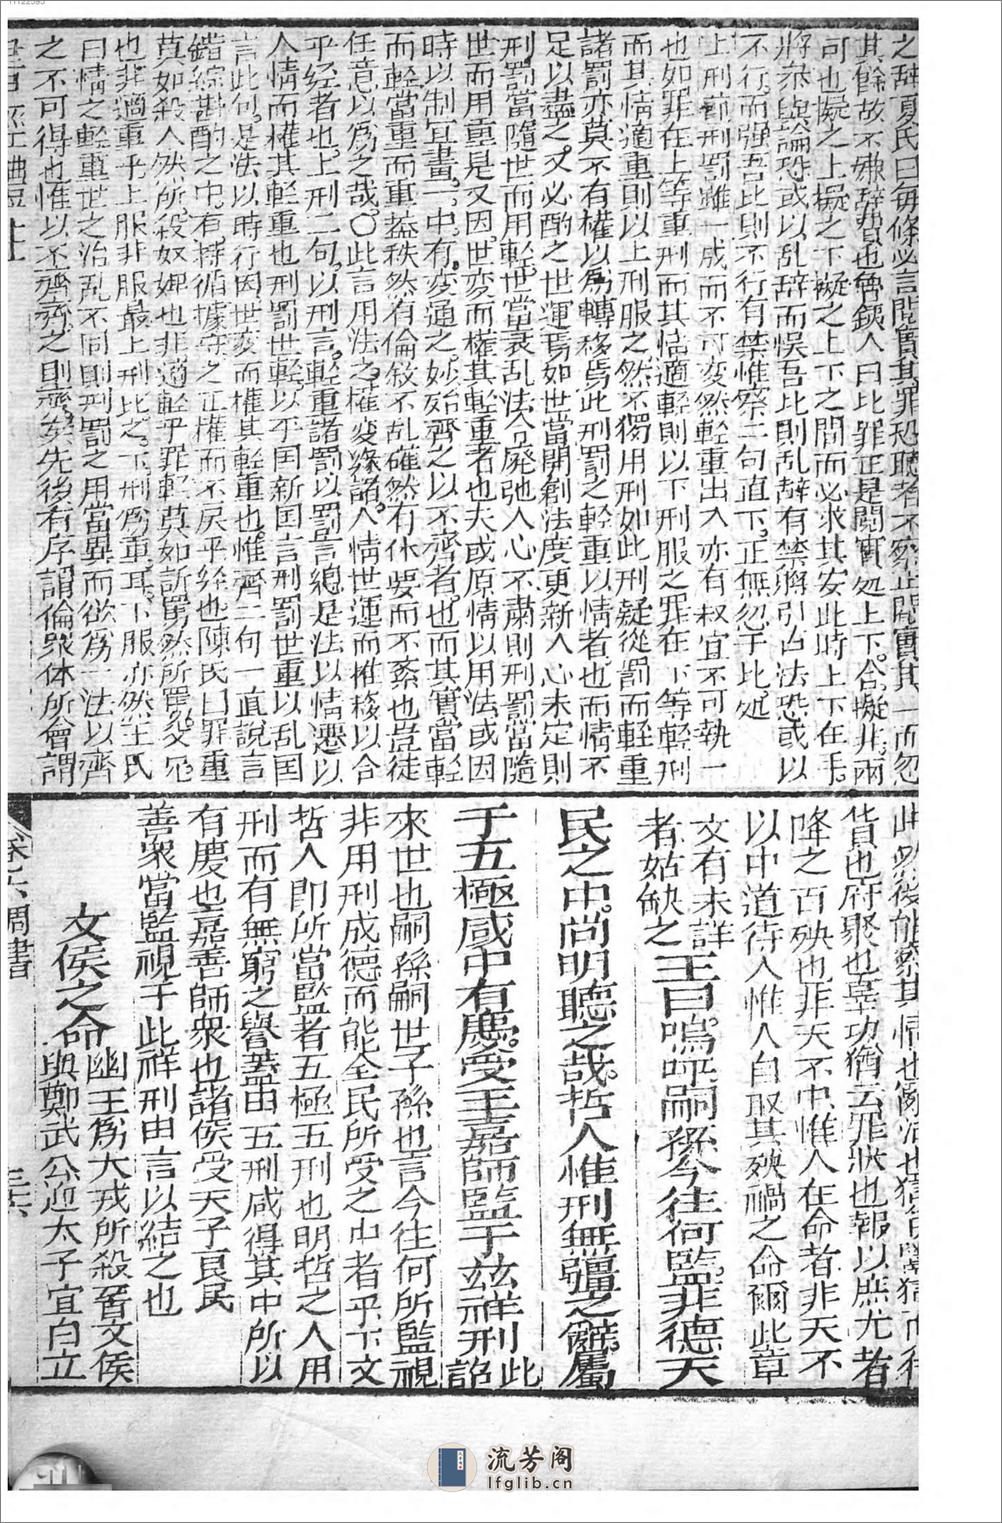 之辞夏氏曰每條必言閱實其罪恐聽者不察止閱實其一而忽
其餘故不殊辞費也魯鈇人曰比罪正是閱實処上下合擬其兩
可也擬之上擬之下擬之上下之間而必求其安此時上下在手
將參與論恐或以乱辞而悞吾比則乱辞有禁將引古法恐或以
不行而强吾比則不行有禁惟察二句直下正無忽于比処
上刑前刑罰雖一成而不可变然輕重出入亦有权宜不可執一
也如罪在上等重刑而其情適輕則以下刑服之罪在下等輕刑
而其情適重則以上刑服之然不獨用刑如此刑疑從罰而輕重
諸罰亦莫不有權以為轉移焉此刑罰之輕重以情者也而情不
足以盡之又必酌之世運焉如世當開創法度更新人心未定則
刑罰當隨世而用輕世當衰乱法令廢弛人心不肅則刑罰當隨
世而用重是又因世变而權其輕重者也夫或原情以用法或因
時以制宜畫一中有变通之妙殆齊之以不齊者也而其實當輕
而輕當重而重益秩然有倫敘不乱確然有体要而不紊也豈徒
任意以為之哉○此言用法之權变緣諸人情世運而惟移以合
乎经者也上刑二句以刑言輕重諸罰以罰言總是法以情遷以
人情而權其輕重也刑罰世輕以乎国新国言刑罰世重以乱国
言此句是法以時行因世变而權其輕重也惟齊二句一直說言
錯綜斟酌之中有持循據守之正權而不戻乎经也陳氏曰罪重
莫如殺人然所殺奴婢也非適輕乎罪輕莫如訴罵然所罵父兄
也非適重乎上服非服最上刑比之下刑為重耳下服亦然王氏
曰情之輕重世之治乱不同則刑罰之用當異而欲為一法以齊
之不可得也惟以不齊齊之則齊矣先後有序謂倫眾体所會謂
此然後能察其情也
貨也府聚也辜功猶云罪狀也報以庶尤者
降之百殃也非天不中惟人在命者非天不
以中道待人惟人自取其殃禍之命爾此章
文有未詳
者姑缺之王曰嗚呼嗣孫今往何監非德天
民之中尚明聽之哉哲人惟刑無疆之辭屬
于五極咸中有慶受王嘉師監于茲祥刑此詔
來世也嗣孫嗣世子孫也言今往何所監視
非用刑成德而能全民所受之中者乎下文
哲人即所當監者五極五刑也明哲之人用
刑而有無窮之譽蓋由五刑咸得其中所以
有慶也嘉善師衆也諸侯受天子良民
善衆當監視于此祥刑由言以結之也
文侯之命幽王為犬戎所殺晉文侯
與鄭武公迎太子宜臼立
卷六周書
流芳阁
lfglib.cn